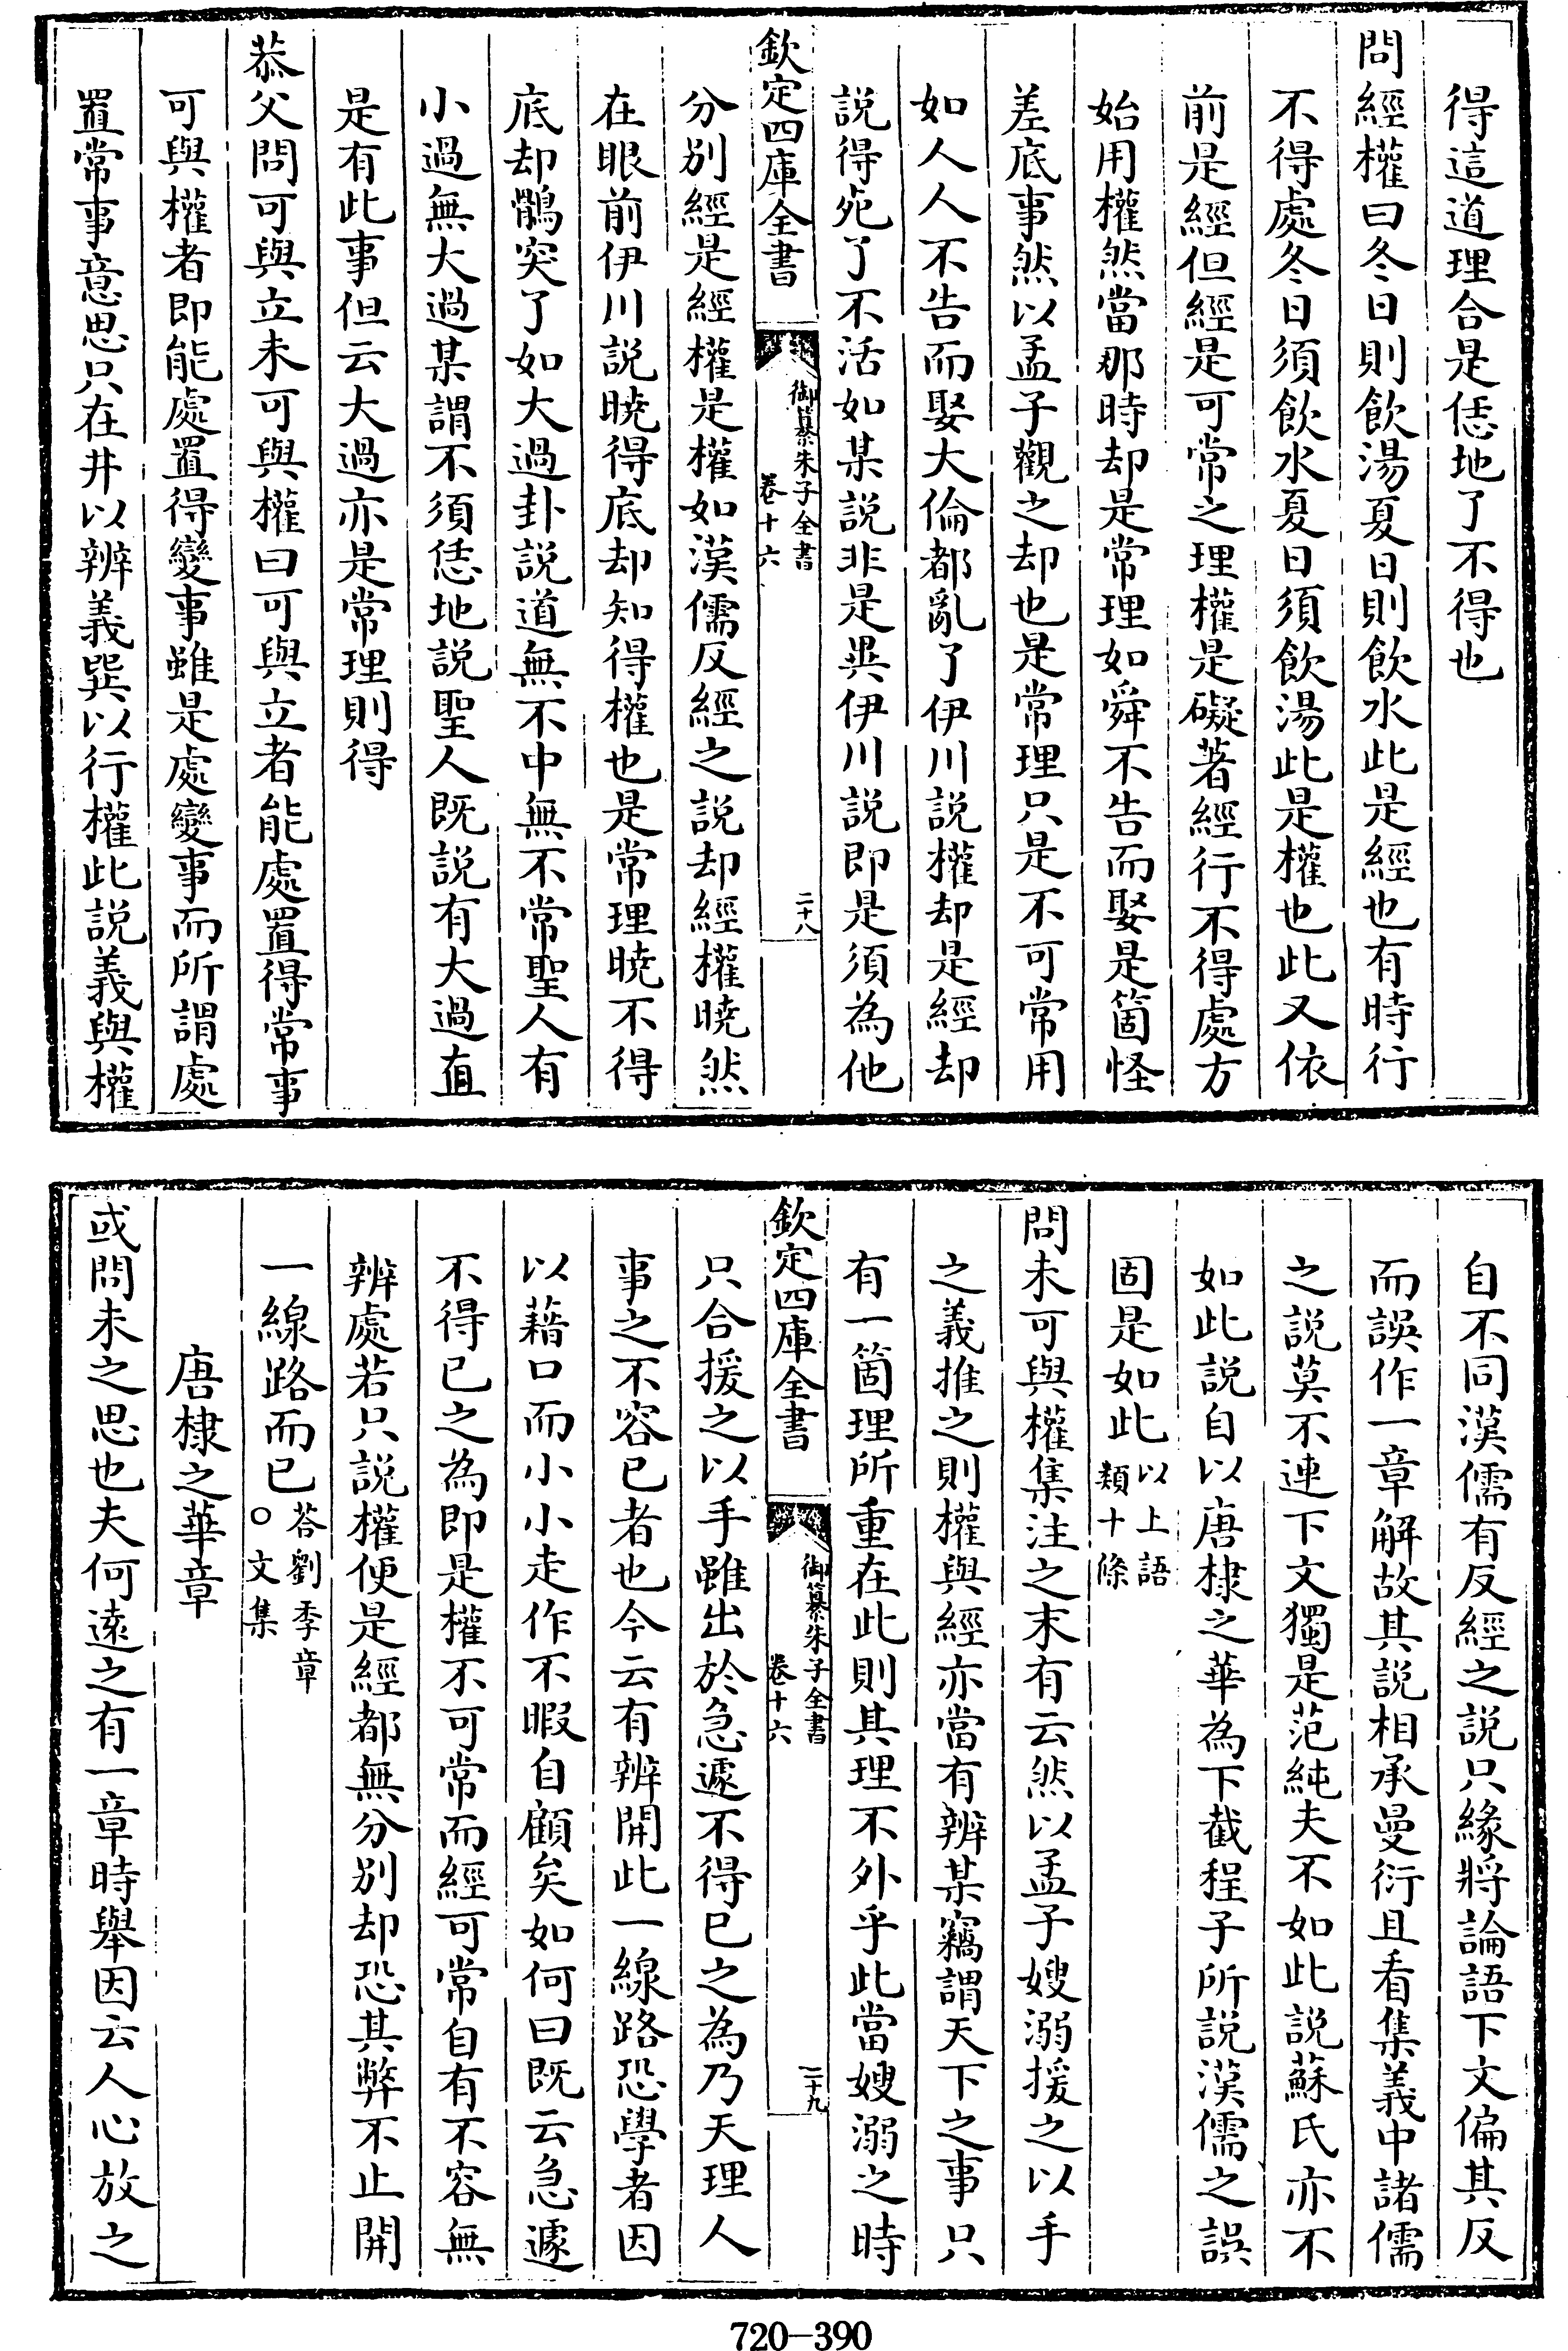 得這道理合是恁地了不得也
問經權曰冬日則飲湯夏日則飲水此是經也有時行
不得處冬日須飲水夏日須飲湯此是權也此又依
前是經但經是可常之理權是礙著經行不得處方
始用權然當那時却是常理如舜不告而娶是箇怪
差底事然以孟子觀之却也是常理只是不可常用
如人人不告而娶大倫都亂了伊川說權却是經却
說得死了不活如某說非是異伊川說即是須為他
欽定四庫全書
御纂朱子全書
卷十六
二十八
分别經是經權是權如漢儒反經之說却經權曉然
在眼前伊川說曉得底却知得權也是常理曉不得
底却鶻突了如大過卦說道無不中無不常聖人有
小過無大過某謂不須恁地說聖人既說有大過直
是有此事但云大過亦是常理則得
恭父問可與立未可與權曰可與立者能處置得常事
可與權者即能處置得變事雖是處變事而所謂處
置常事意思只在井以辨義巽以行權此說義與權
自不同漢儒有反經之說只緣將論語下文偏其反
而誤作一章解故其說相承曼衍且看集義中諸儒
之說莫不連下文獨是范純夫不如此說蘇氏亦不
如此說自以唐棣之華為下截程子所說漢儒之誤
固是如此以上語類十條
問未可與權集注之末有云然以孟子嫂溺援之以手
之義推之則權與經亦當有辨某竊謂天下之事只
有一箇理所重在此則其理不外乎此當嫂溺之時
欽定四庫全書
御纂朱子全書
卷十六
二十九
只合援之以手雖出於急遽不得已之為乃天理人
事之不容已者也今云有辨開此一線路恐學者因
以藉口而小小走作不暇自顧矣如何曰既云急遽
不得已之為即是權不可常而經可常自有不容無
辨處若只說權便是經都無分别却恐其弊不止開
一線路而已答劉季章○文集
唐棣之華章
或問未之思也夫何遠之有一章時舉因云人心放之
720-390